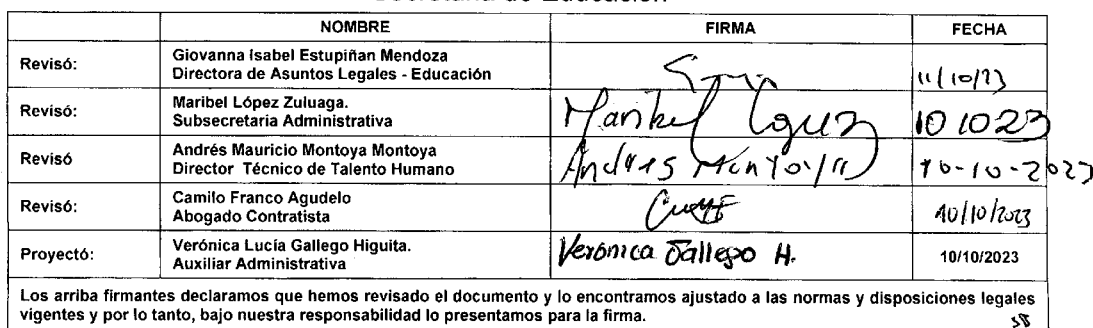 Secretaría de Educación
NOMBRE FIRMA FECHA
Revisó: Giovanna Isabel Estupiñan Mendoza
Directora de Asuntos Legales - Educación 11/10/23
Revisó: Maribel López Zuluaga.
Subsecretaria Administrativa Maribel López 10 10 23
Revisó Andrés Mauricio Montoya Montoya
Director Técnico de Talento Humano Andrés Montoya 10-10-2023
Revisó: Camilo Franco Agudelo
Abogado Contratista 10/10/2023
Proyectó: Verónica Lucía Gallego Higuita.
Auxiliar Administrativa Verónica Gallego H. 10/10/2023
Los arriba firmantes declaramos que hemos revisado el documento y lo encontramos ajustado a las normas y disposiciones legales
vigentes y por lo tanto, bajo nuestra responsabilidad lo presentamos para la firma.